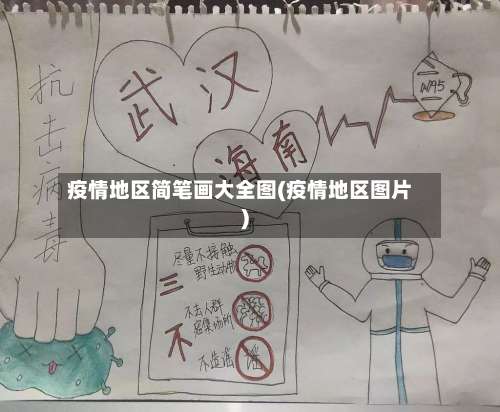 抗击病毒
武汉
海南
N95
疫情地区简笔画大全图(疫情地区图片
)
三
不
尽量不接触
野生动物
不去人群
密集场所
不造谣
谣